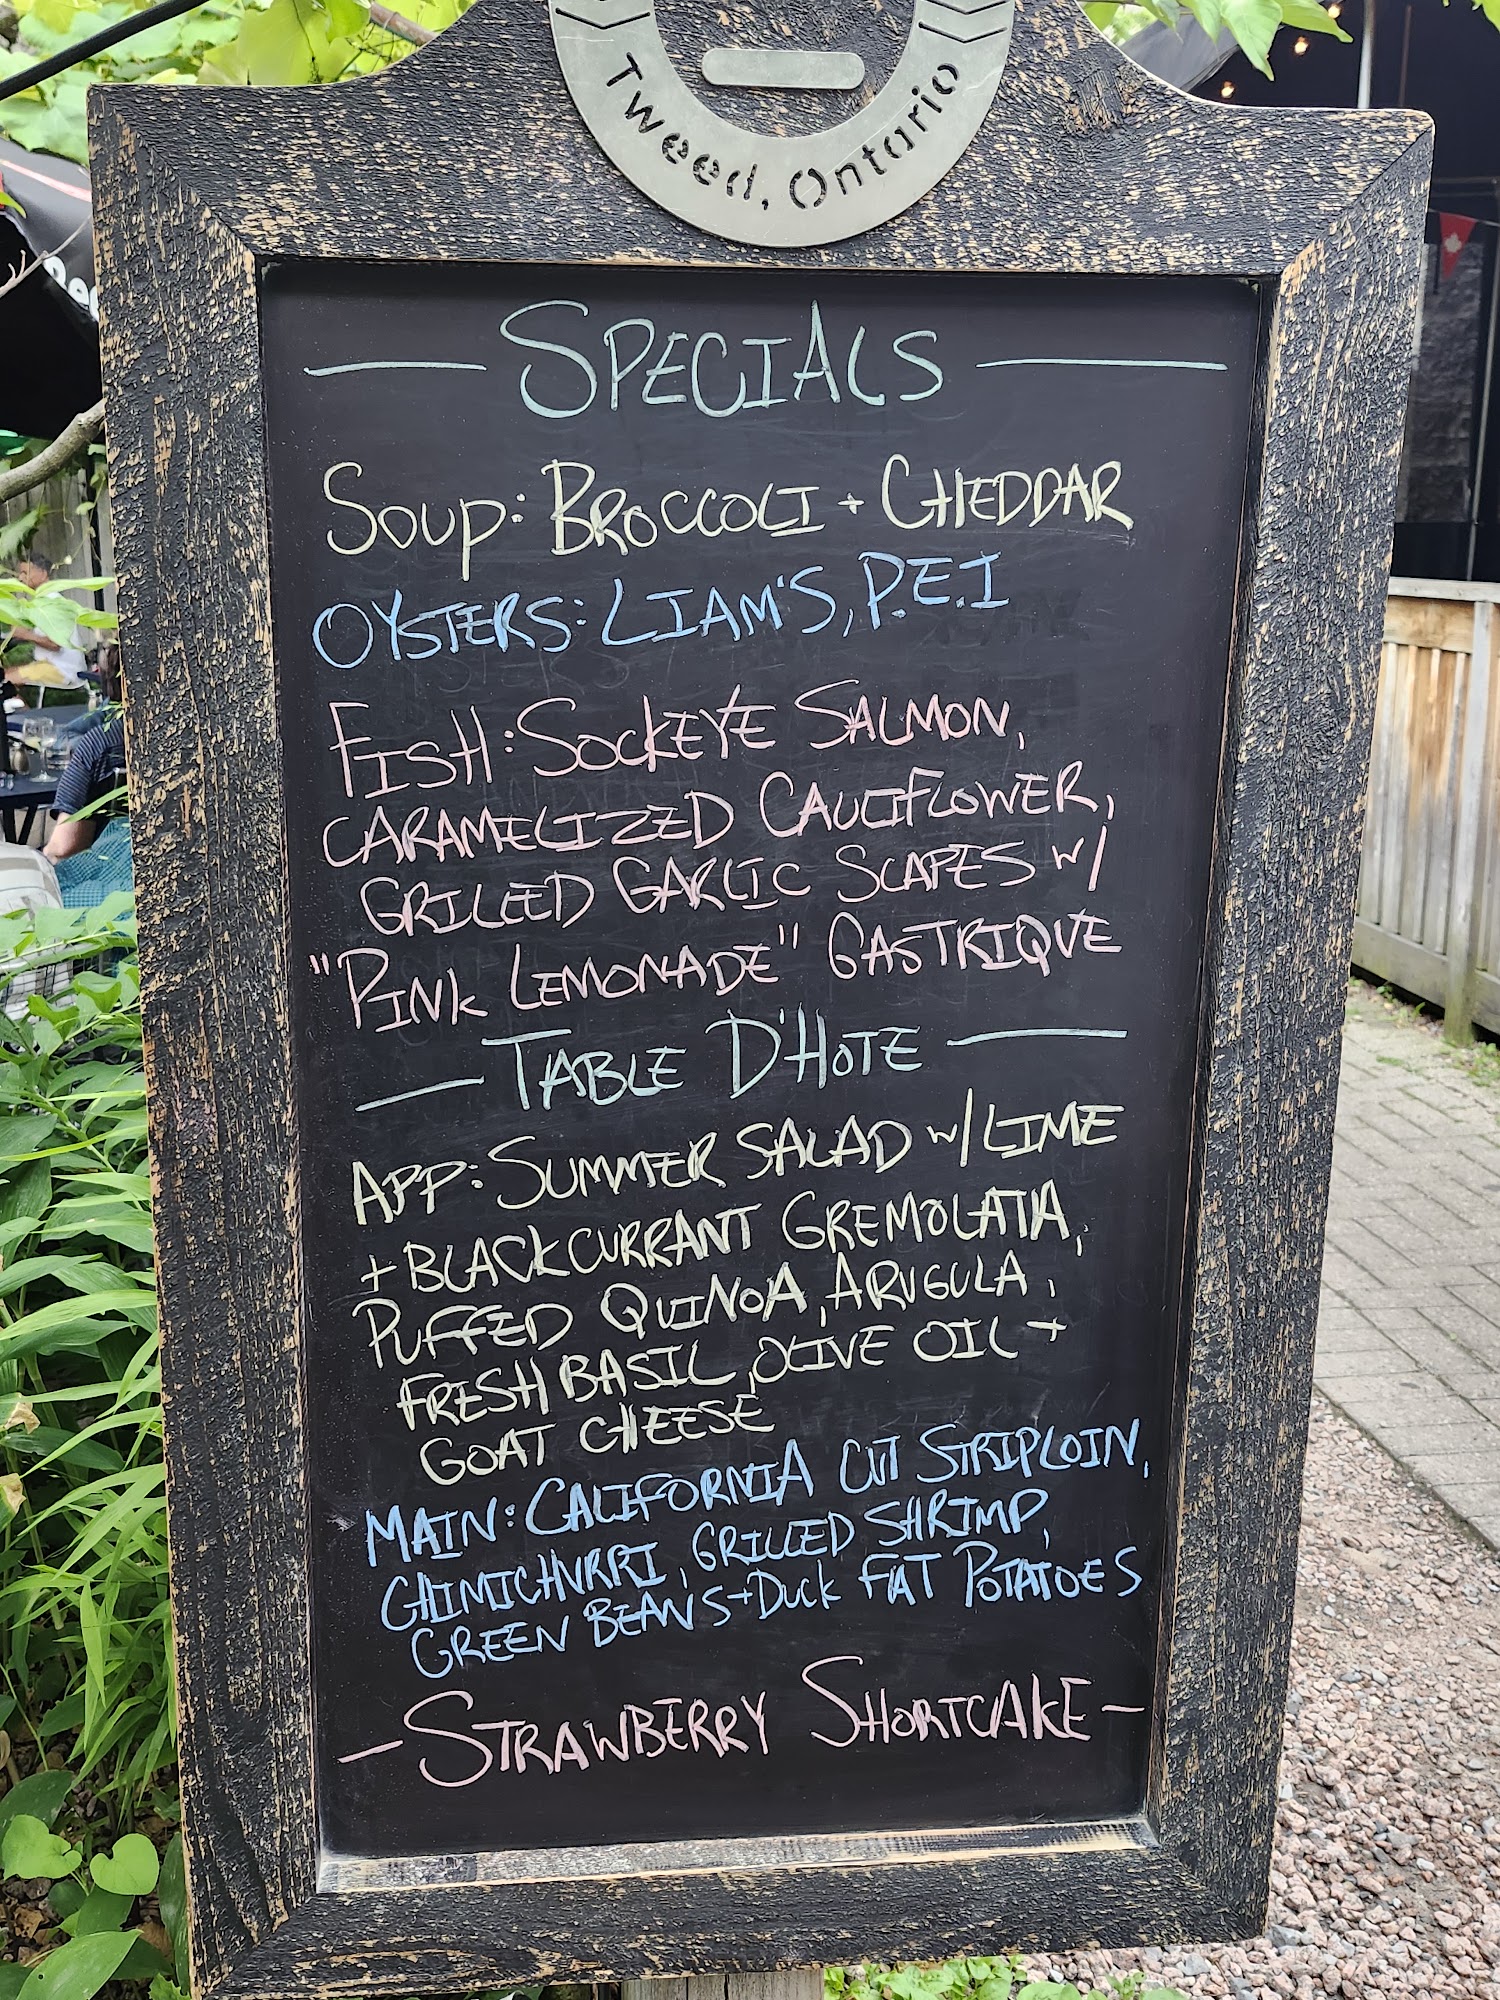 Tweed, Ontario
SPECIALS
SOUP: BROCCOLI + CHEDDAR
OYSTERS: LIAM'S, P.E.I
FISH: SOCKEYE SALMON,
CARAMELIZED CAULIFLOWER,
GRILLED GARLIC SCAPES W/
"PINK LEMONADE" GASTRIQUE
TABLE D'HOTE
APP: SUMMER SALAD W/ LIME
+ BLACKCURRANT GREMOLATA,
PUFFED QUINOA, ARUGULA,
FRESH BASIL, OLIVE OIL +
GOAT CHEESE
MAIN: CALIFORNIA CUT STRIPLOIN,
CHIMICHURRI, GRILLED SHRIMP,
GREEN BEANS + DUCK FAT POTATOES
- STRAWBERRY SHORTCAKE -